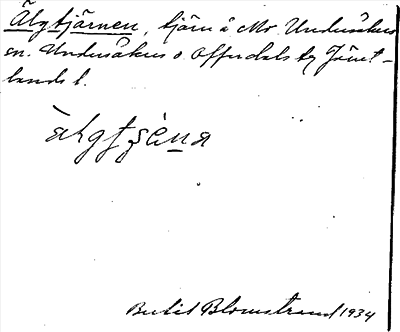 Älgtjärnen, tjärn å Mo, Undersåkers
sn. Undersåkers o. Offerdals tg Jämt-
lands l.
Bertil Blomstrand 1934